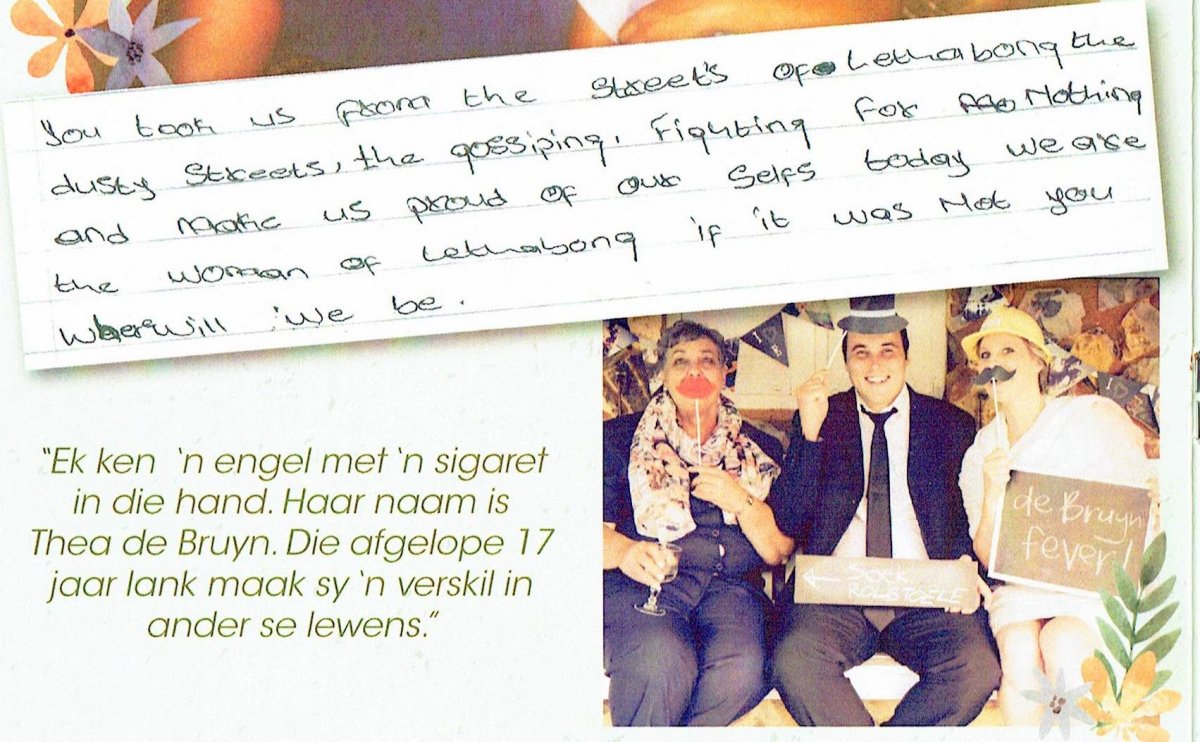 You took us from the Street's of Lethabong the
dusty Streets, the gossiping, Fighting For Nothing
and make us proud of our Selfs today we are
the woman of Lethabong if it was Not you
Wherwill we be.
“Ek ken ‘n engel met ‘n sigaret
in die hand. Haar naam is
Thea de Bruyn. Die afgelope 17
jaar lank maak sy ‘n verskil in
ander se lewens.”
de Bruyn
fever!
← Soek